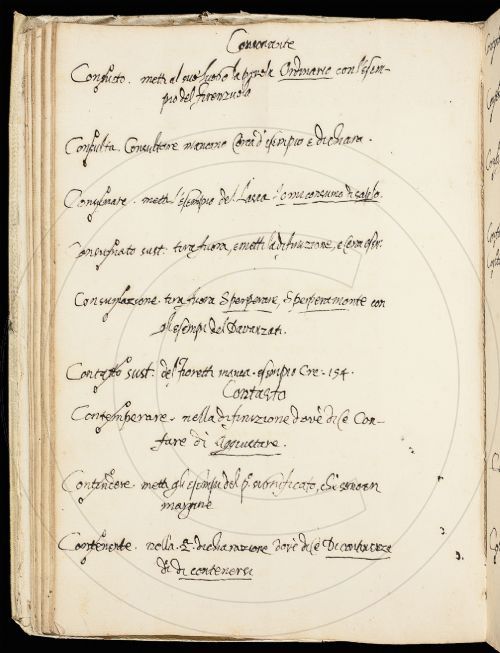 Consonante
Consueto. metti al suo luogo la parola Ordinario con l'esem-
pio del firenzuola
Consulta. Consultare mancano Cerca d'esempio e dichiara.
Consumare. metti l'esempio del Lasca
Consumato sust: tira fuora, e metti la difinizione, e
Consumazione tira fuora Sperperare, Sperperamento con
gli esempi del Davanzati.
Contatto sust: del fioretti manca esempio Cre: 154.
Contasto
Contemperare. nella difinizione dov'è dice Con-
fare di Aggiustare.
Contenere. metti gli esempi del p.º significato, che sono in
margine
Contenente. nella 2.ª dichiarazione dov'è dice Di continenza
di di contenersi